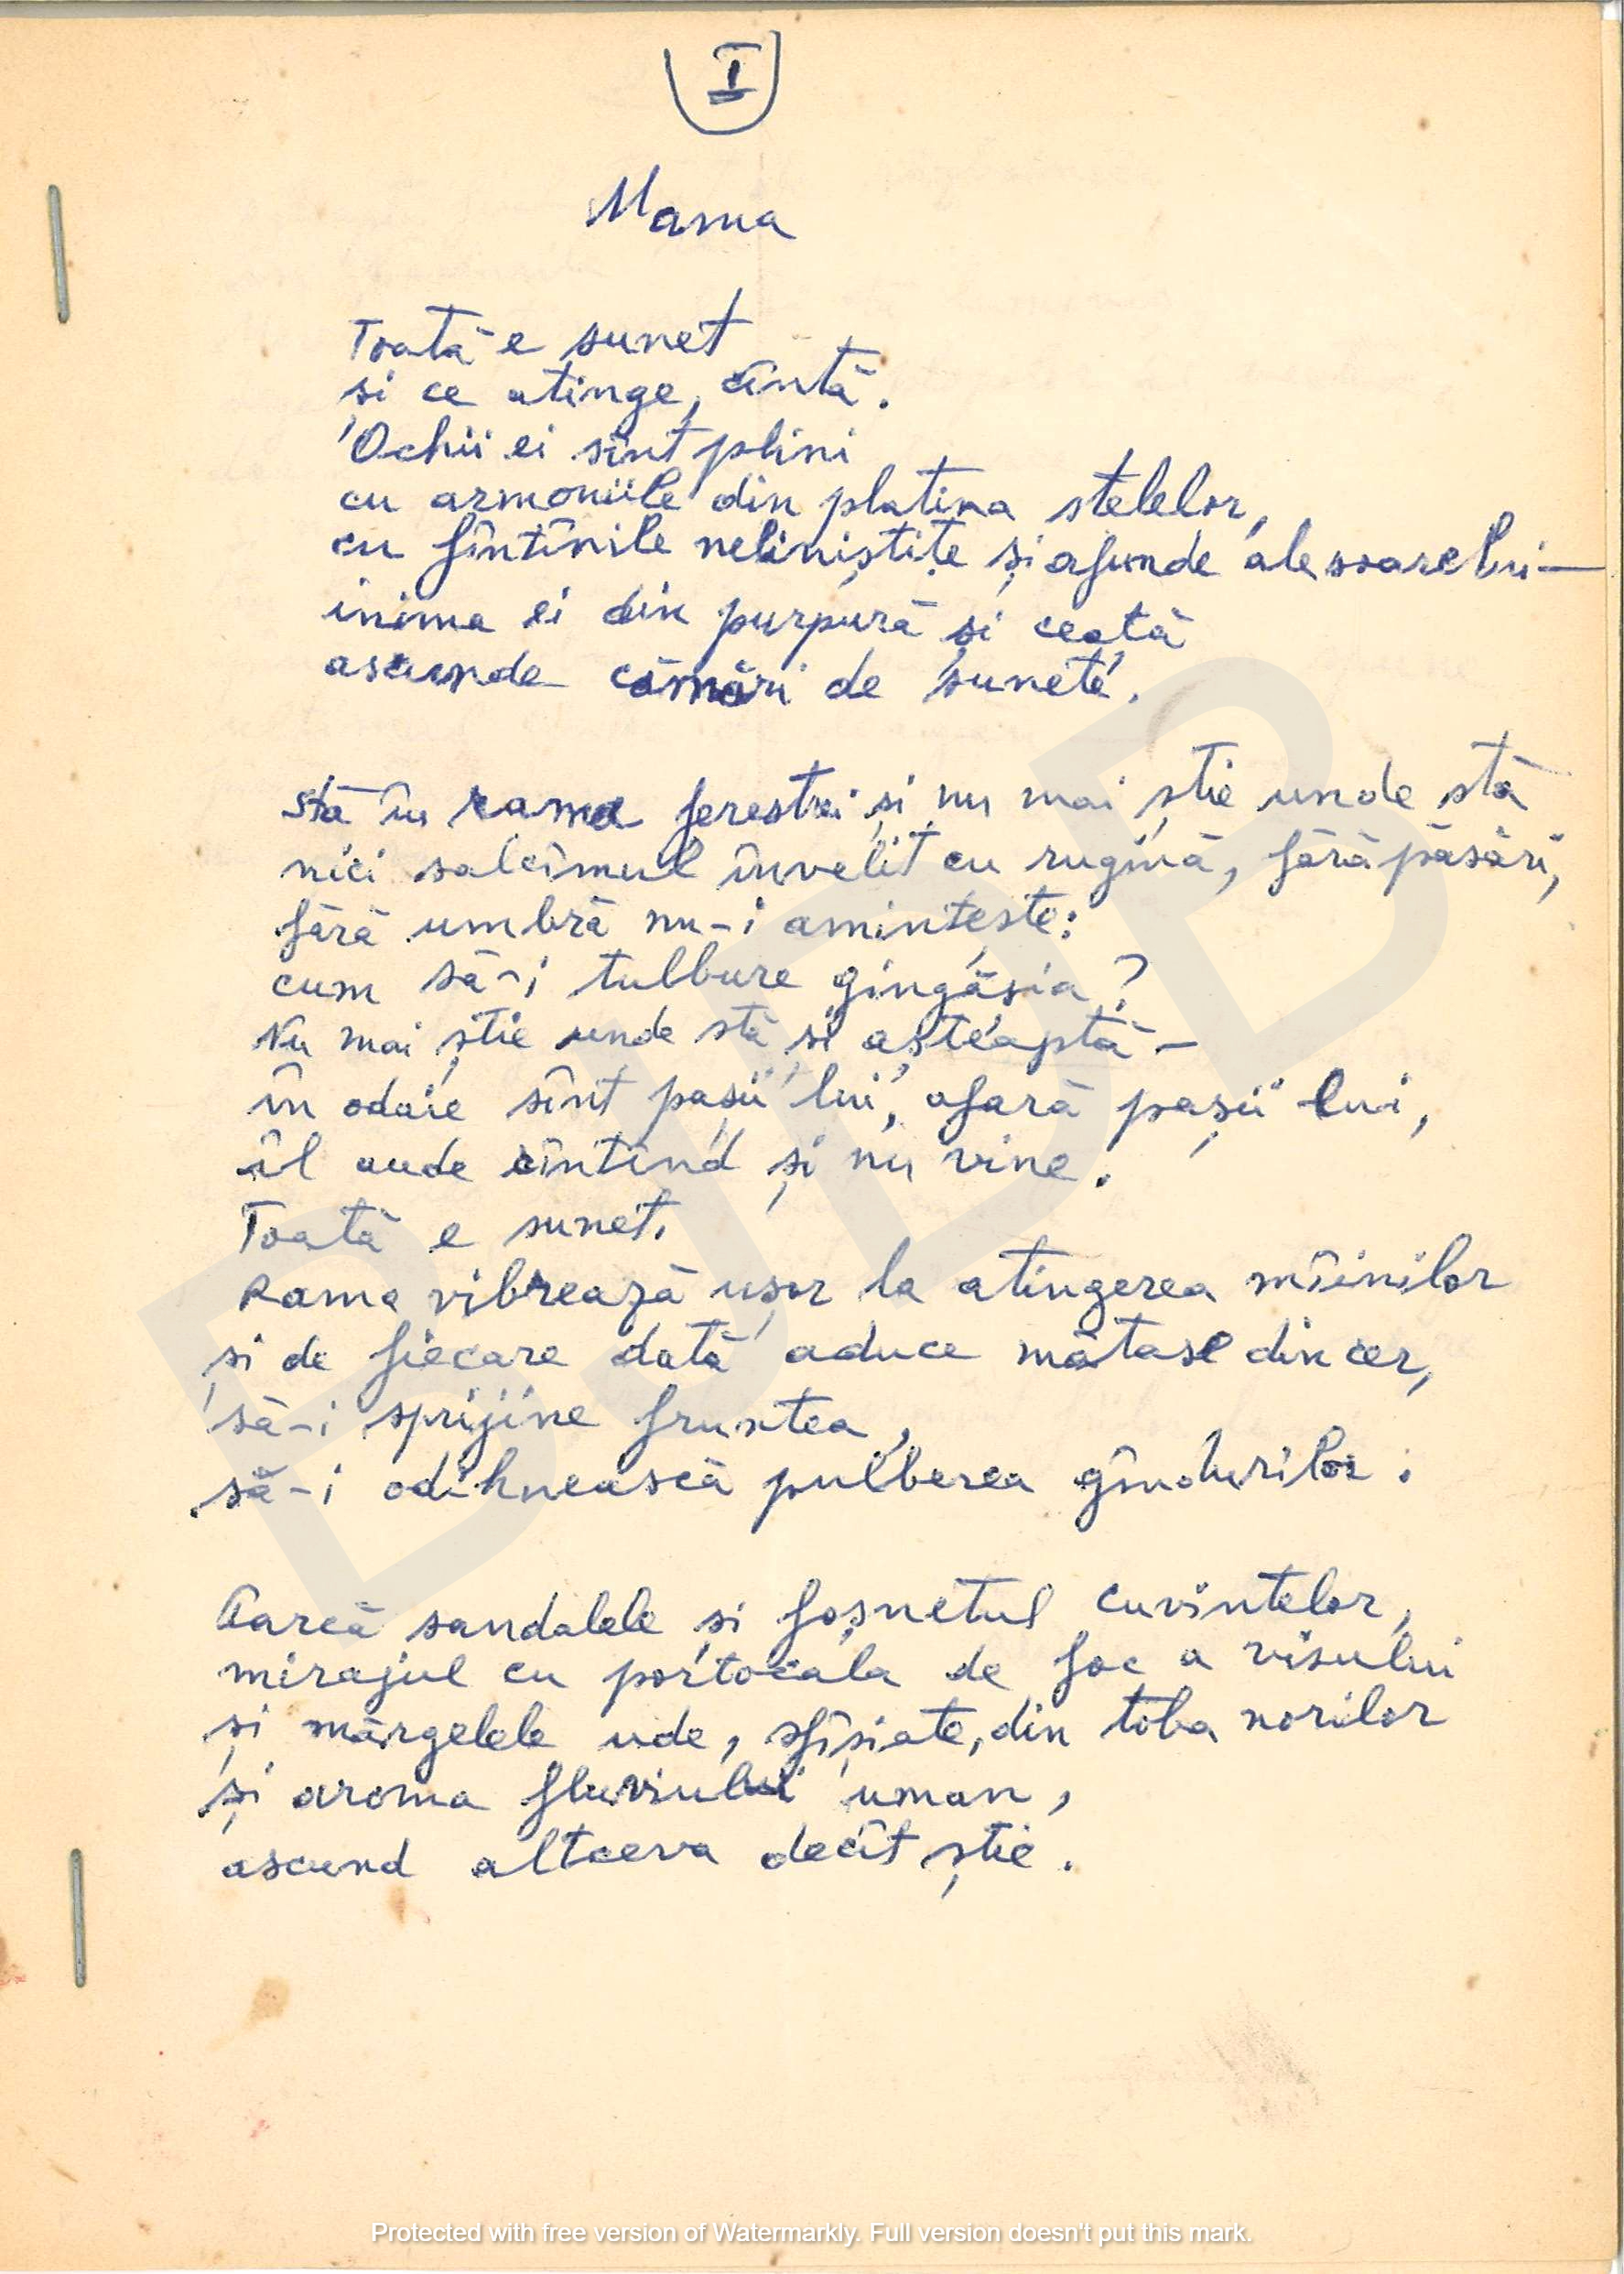 I
Mama
Toată e sunet
și ce atinge, cîntă.
Ochii ei sînt plini
cu armoniile din platina stelelor,
cu fîntînile neliniștite și afunde ale soarelui —
inima ei din purpură și ceață
ascunde cămări de sunete.
Stă în rama ferestrei și nu mai știe unde stă
nici salcîmul învelit cu rugină, fără păsări,
fără umbră nu-i amintește:
cum să-i tulbure gingășia?
Nu mai știe unde stă și așteaptă —
în odaie sînt pașii lui, afară pașii lui,
îl aude cîntînd și nu vine.
Toată e sunet.
Rama vibrează ușor la atingerea mîinilor
și de fiecare dată aduce mătase din cer,
să-i sprijine fruntea,
să-i odihnească pulberea gîndurilor.
Parcă sandalele și foșnetul cuvintelor,
mirajul cu portocala de foc a visului
și mărgelele ude, sfîșiate, din toba norilor
și aroma fluviului uman,
ascund altceva decît știe.
BJDB
Protected with free version of Watermarkly. Full version doesn't put this mark.